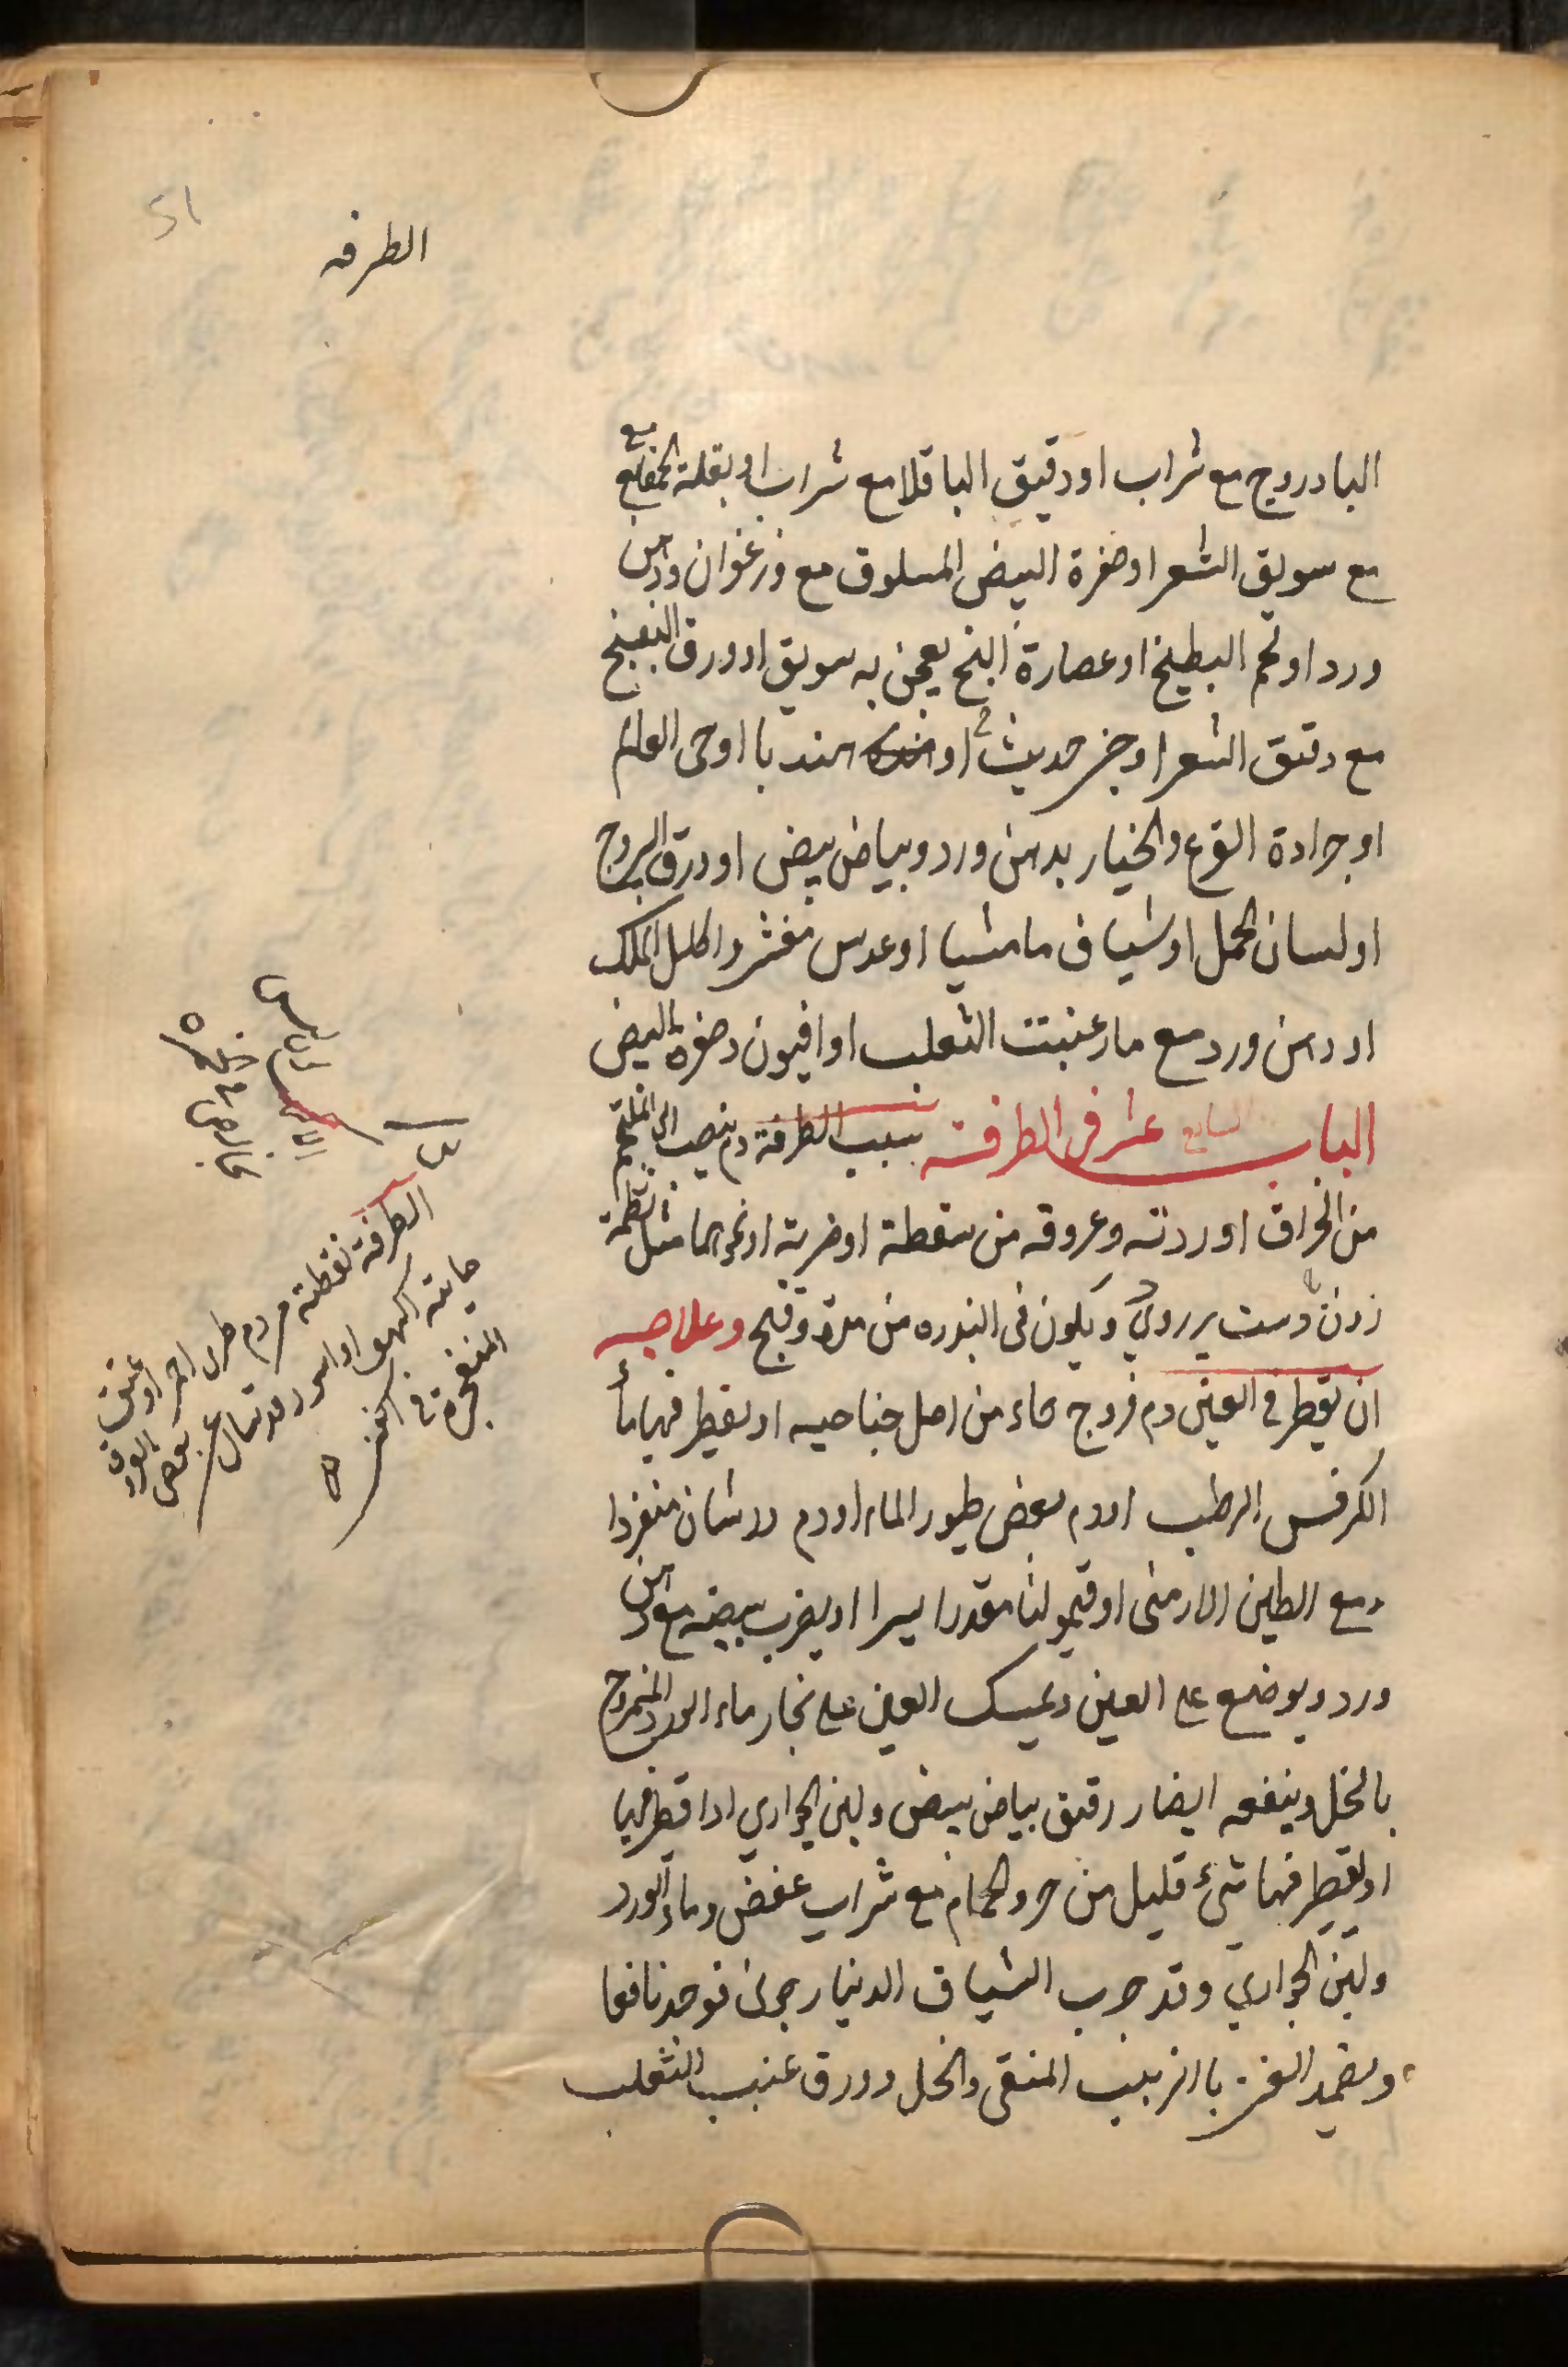 51
الطرفه
البادروج مع شراب او دقيق الباقلا مع شراب او بقلة الحمقا مع
مع سويق الشعر او صفرة البيض المسلوق مع وزعفران ودهن
ورد او لحم البطيخ او عصارة البنج يعجن به سويق او ورق البنفسج
مع دقيق الشعر او خبز حديث او هندبا او حى العالم
او جرادة القرع والخيار بدهن ورد وبياض بيض او ورق اليبروج
او لسان الحمل او شياف ماميثيا او عدس مقشر واكليل الملك
او دهن ورد مع ماء عنبت الثعلب او افيون وصفرة البيض
الباب السابع عشر في الطرفة سبب الطرفة دم ينصب الى الملتحم
من انخراق اوردته وعروقه من سقطة او ضربة او نحوهما مثل
ويكون فى الندره من مدة وقيح وعلاجه
ان يقطر فى العين دم فروج كاء من اصل جناحيه او يقطر فيها ماء
الكرفس الرطب او دم بعض طيور الماء او دم ورشان منفردا
ومع الطين الارمنى او قيموليا مقدرا يسرا او يضرب بيضه مع دهن
ورد ويوضع على العين ويمسك العين على بخار ماء الورد الممزوج
بالخل وينفعه ايضا رقيق بياض بيض ولبن الجوارى اذا قطر فيها
او يقطر فيها شىء قليل من خرو الحمام مع شراب عفص وماء الورد
ولبن الجوارى وقد جرب الشياف الدينارجون فوجد نافعا
ويضمد العين باالزبيب المنقى والخل وورق عنب الثعلب
الطرفة نقطة من دم طرى احمر او عتيق
مايته اكهب او اسود قد سال عن بعض العروق
المنفجرة فى العين